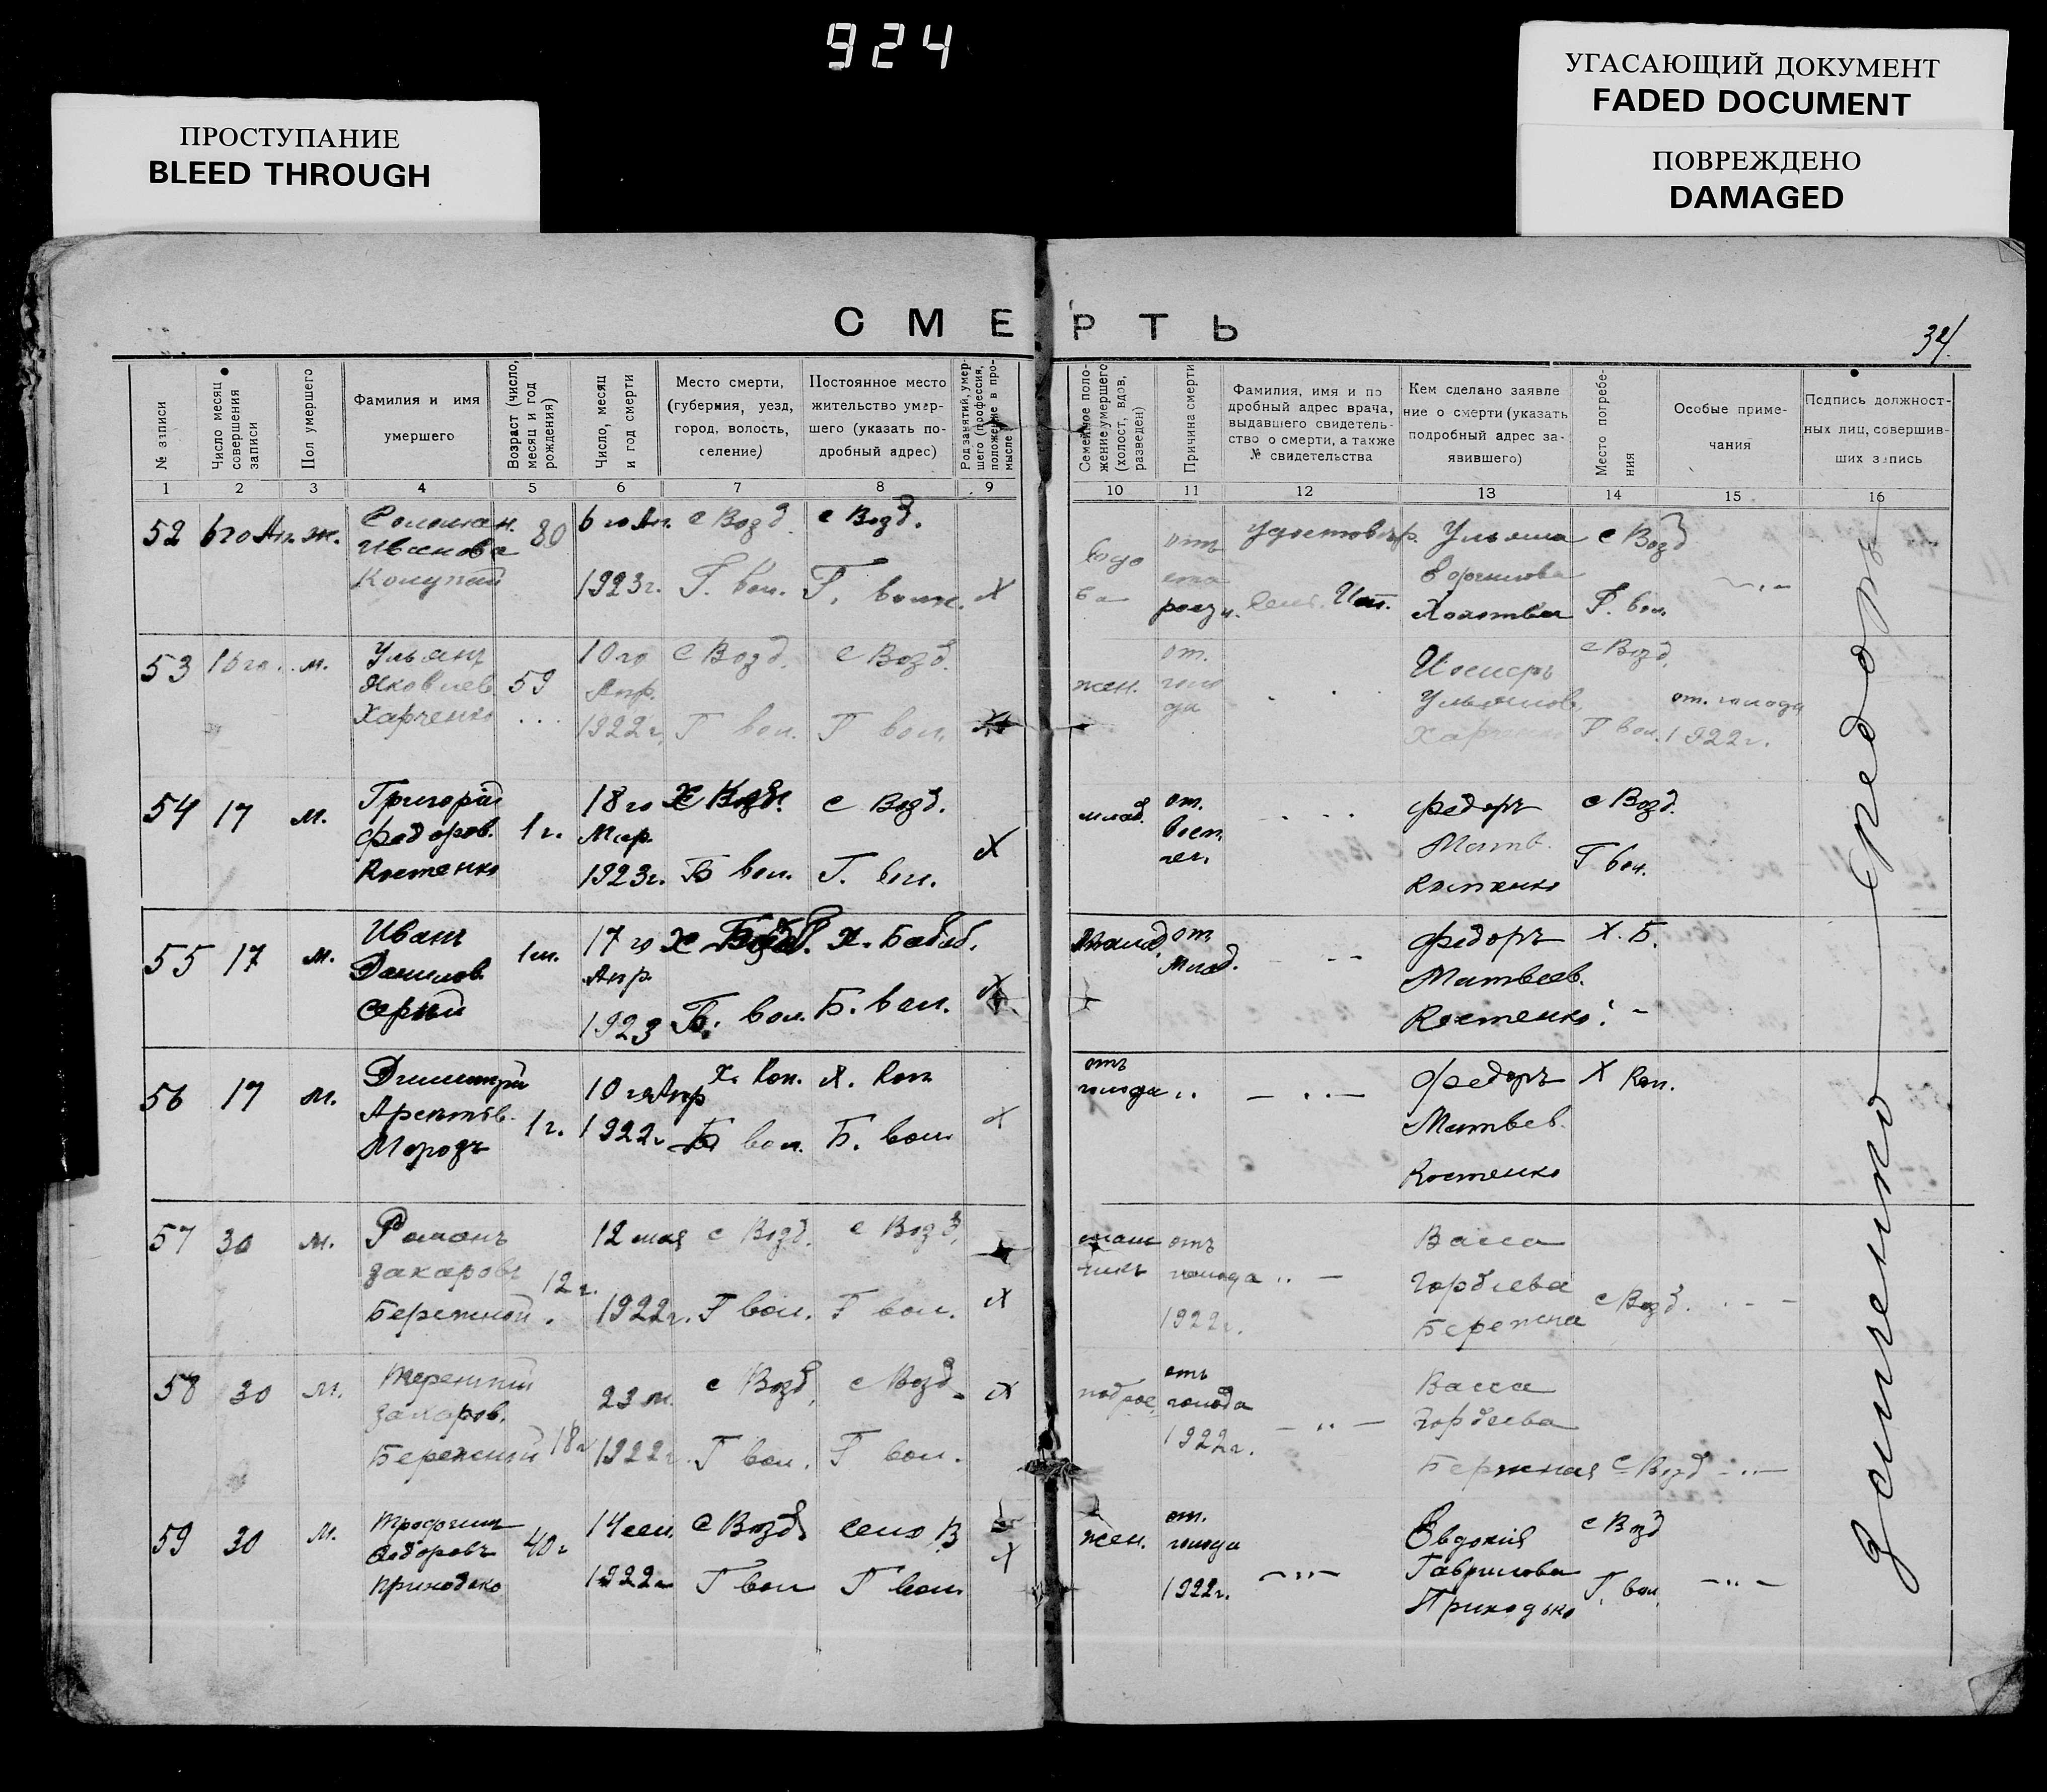 924
УГАСАЮЩИЙ ДОКУМЕНТ
FADED DOCUMENT
ПРОСТУПАНИЕ
BLEED THROUGH
ПОВРЕЖДЕНО
DAMAGED
СМЕРТЬ
34
№ записи
Число месяц совершения записи
Пол умершего
Фамилия и имя умершего
Возраст (число, месяц и год рождения)
Число, месяц и год смерти
Место смерти, (губерния, уезд, город, волость, селение)
Постоянное место жительство умершего (указать подробный адрес)
Род занятий, умершего (профессия, положение в промысле
Семейное положение умершего (холост, вдов, разведен)
Причина смерти
Фамилия, имя и подробный адрес врача, выдавшего свидетельство о смерти, а также № свидетельства
Кем сделано заявление о смерти (указать подробный адрес заявившего)
Место погребения
Особые примечания
Подпись должностных лиц, совершивших запись
1 2 3 4 5 6 7 8 9 10 11 12 13 14 15 16
52 6го Ап. ж. Иванова 80 6го Ап. 1923г. с Возд. Г. вол. с Возд. Г. волос. Х
вдова отъ удостовѣр. Ульяна с Возд Г. вол.
53 16го м. Ульянъ Яковлев. Харченко 59 10го Апр. 1922г. с Возд. Г вол. с Возд. Г вол.
жен. от. голода Ульянов. Харченко с Возд. Г вол. от. голода 1922г.
54 17 м. Григорій Федоров. Костенко 1 г. 18го Мар. 1923г. Х Возд. Б вол. с Возд. Г. вол. Х
млад. от. Федоръ Матв. Костенко с Возд. Г вол.
55 17 м. Иванъ Данилов Серый 1м. 17го Апр. 1923 Х Б. вол. Х. Б. вол. Х
млад. от млад. Федоръ Матвеев. Костенко Х. Б.
56 17 м. Димитрій Морозъ 1г. 10го Апр 1922г Х. Коп. Б вол. Х. Коп Б. вол. Х
отъ голода Федоръ Матвев. Костенко Х Коп.
57 30 м. Романъ Захаровъ Бережной 12г. 12 мая 1922г. с Возд. Г вол. с Возд. Г вол. Х
отъ голода 1922г. Васса Гордѣева Бережна с Возд.
58 30 м. Терентій Захаров. Бережный 18г 23 м. 1922г. с Возд. Г вол. с Возд Г вол. Х
отъ голода 1922г. Васса Гордѣева Бережная с Возд
59 30 м. Федоровъ Приходько 40г 1922г с Возд Г вол село В Г вол. Х
жен. от. голода 1922г. Евдокия Гаврилова Приходько с Возд Г. вол.